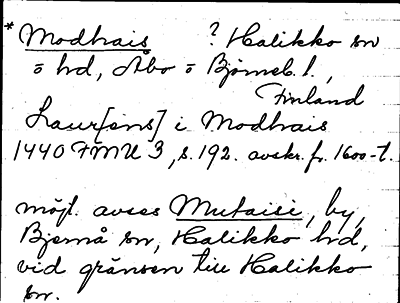 * Modhais ? Halikko sn
ö hd, Åbo o Björneb. l.,
Finland
Laur[ens] i Modhais
1440 FMU 3, s. 192. avskr. fr. 1600-t.
möjl. avses Mutaisi, by,
Bjernå sn, Halikko hd,
vid gränsen till Halikko
sn.